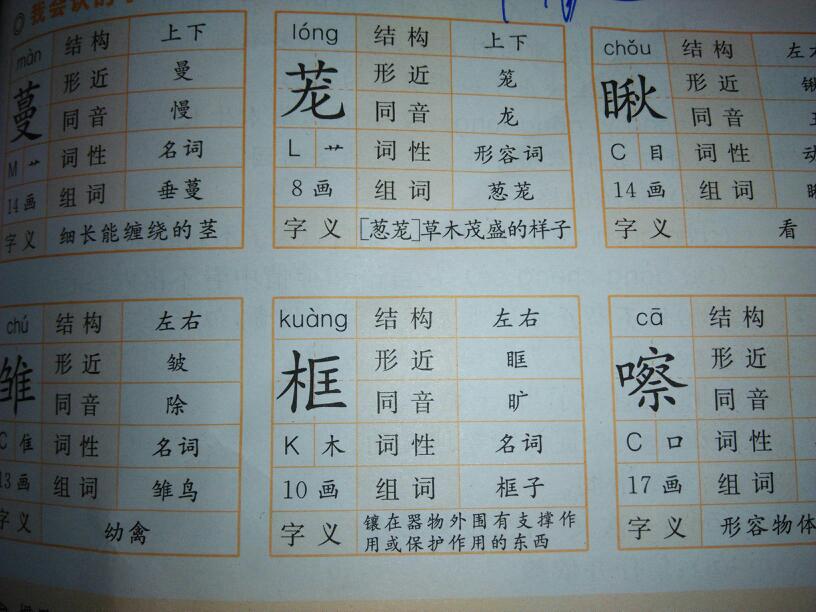 我会认的
màn 结构 上下
蔓 形近 曼
同音 慢
M 艹 词性 名词
14画 组词 垂蔓
字义 细长能缠绕的茎
lóng 结构 上下
茏 形近 笼
同音 龙
L 艹 词性 形容词
8画 组词 葱茏
字义 [葱茏]草木茂盛的样子
chǒu 结构 左
瞅 形近
同音
C 目 词性 动
14画 组词
字义 看
chú 结构 左右
雏 形近 皱
同音 除
C 隹 词性 名词
13画 组词 雏鸟
字义 幼禽
kuàng 结构 左右
框 形近 眶
同音 旷
K 木 词性 名词
10画 组词 框子
字义 镶在器物外围有支撑作
用或保护作用的东西
cā 结构
嚓 形近
同音
C 口 词性
17画 组词
字义 形容物体